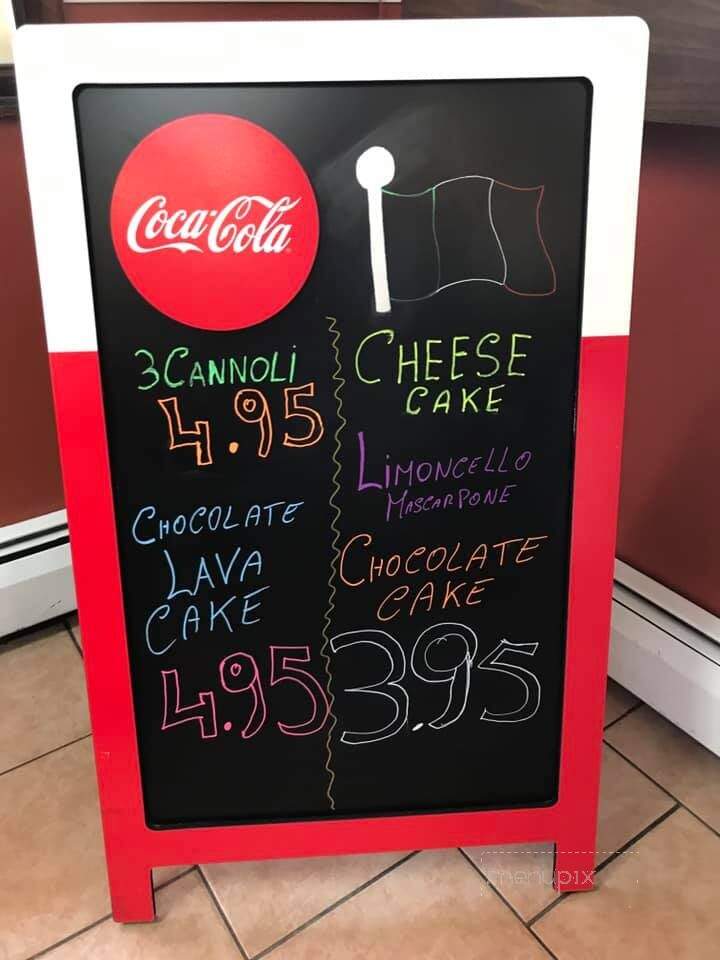 Coca-Cola
3 CANNOLI
4.95
CHOCOLATE
LAVA
CAKE
4.95
CHEESE
CAKE
LIMONCELLO
MASCARPONE
CHOCOLATE
CAKE
3.95
menupix